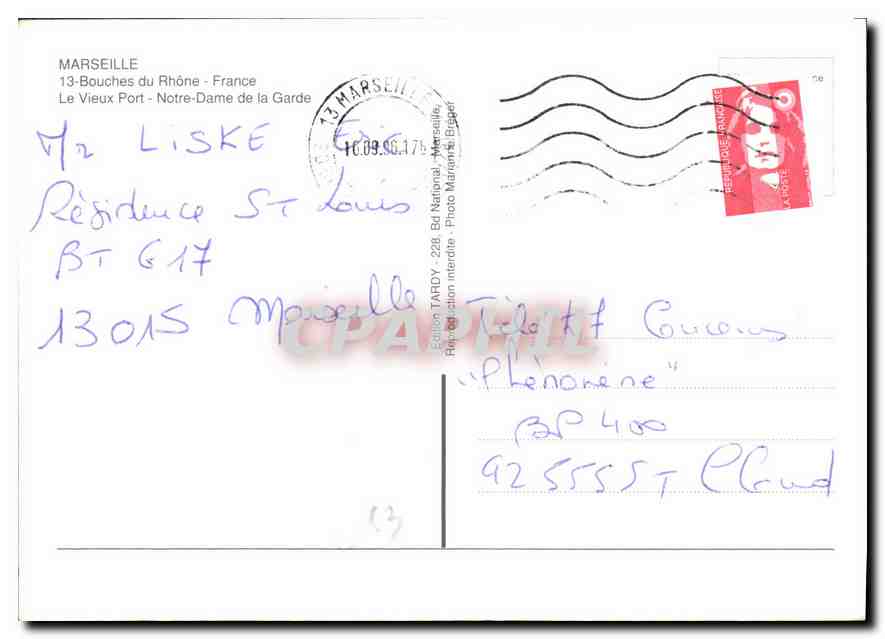 MARSEILLE
13-Bouches du Rhône - France
Le Vieux Port - Notre-Dame de la Garde
13 MARSEILLE
16.09.96.17h
RÉPUBLIQUE FRANÇAISE
LA POSTE
Mr LISKE Eric
Résidence St Louis
BT G17
13015 Marseille
Edition TARDY - 228, Bd National, Marseille,
Reproduction interdite - Photo Marianne Bréger
CPAPHIL
Télé K7 Concours
"Phénomène"
BP 400
92555 ST Cloud